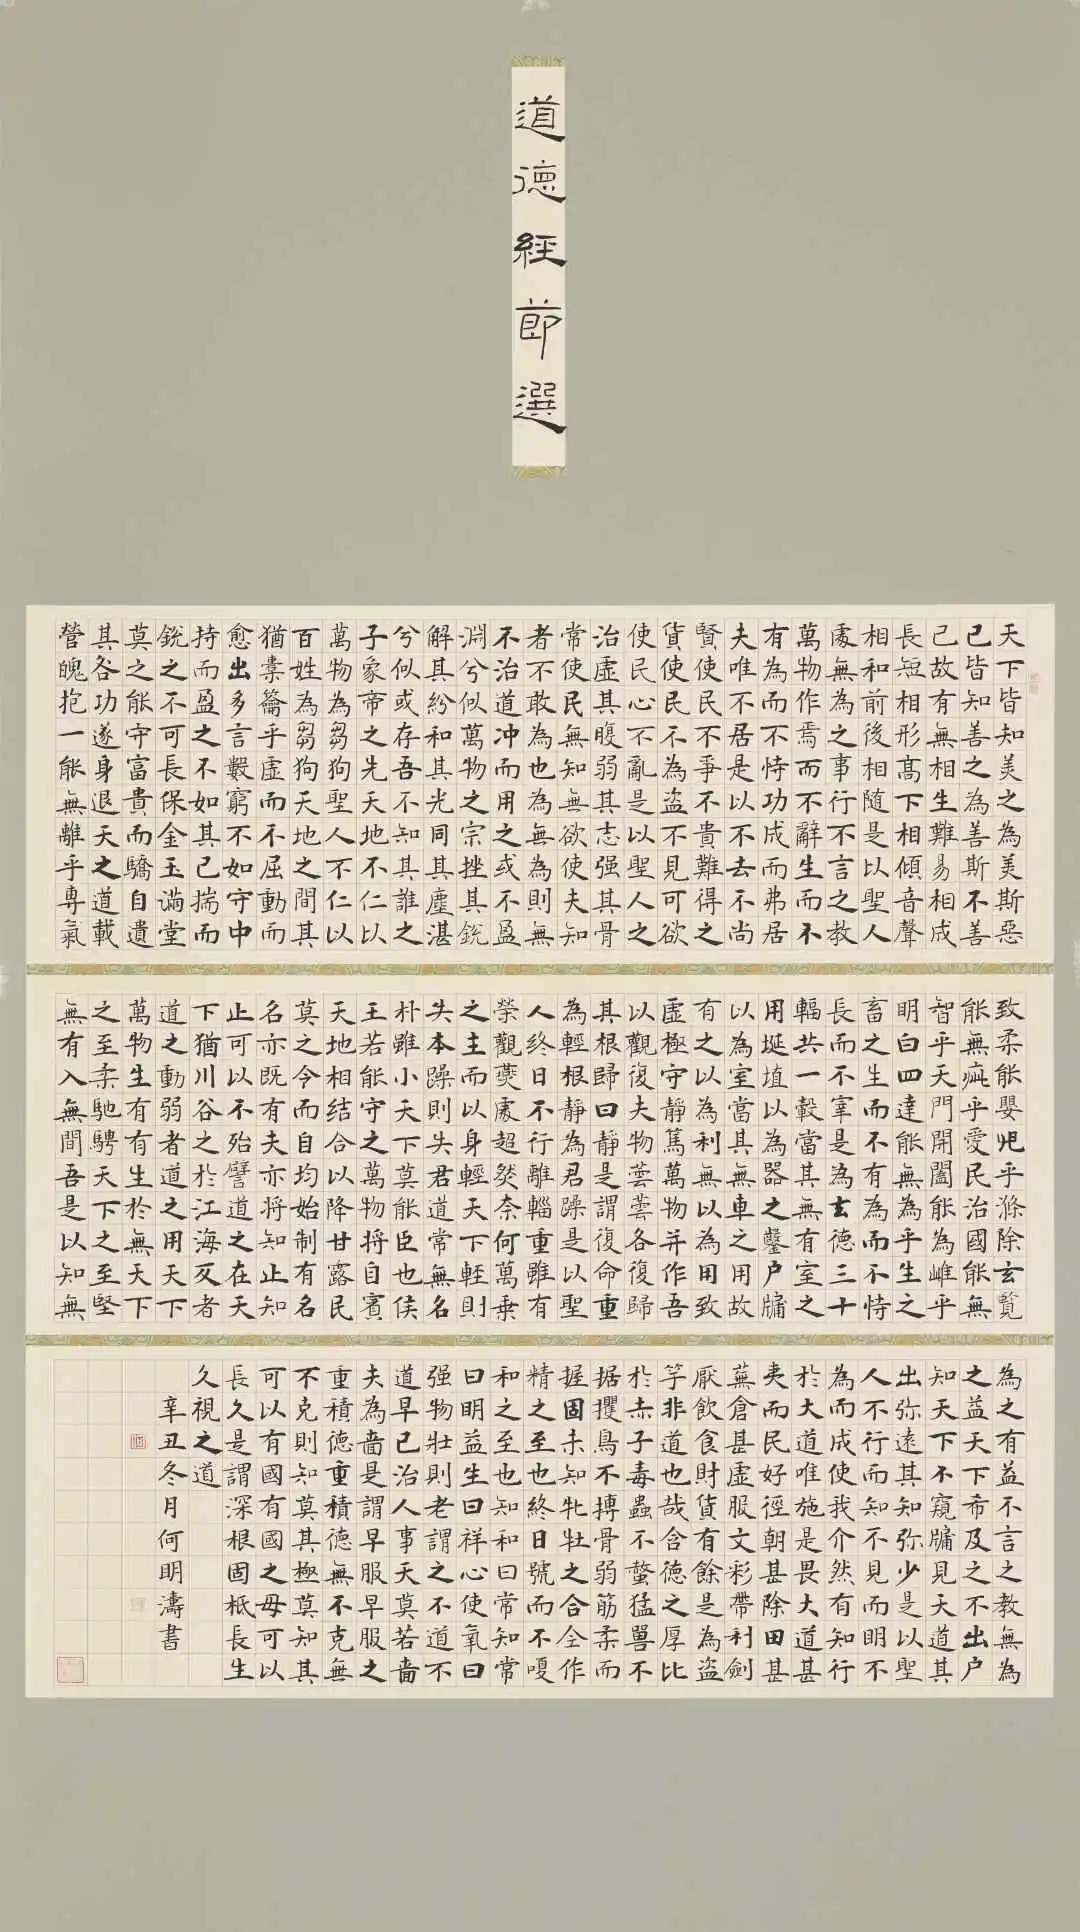 道德經節選
天下皆知美之為美斯惡
已皆知善之為善斯不善
己故有無相生難易相成
長短相形高下相傾音聲
相和前後相隨是以聖人
處無為之事行不言之教
萬物作焉而不辭生而不
有為而不恃功成而弗居
夫唯不居是以不去不尚
賢使民不爭不貴難得之
貨使民不為盜不見可欲
使民心不亂是以聖人之
治虛其腹弱其志强其骨
常使民無知無欲使夫知
者不敢為也為無為則無
不治道沖而用之或不盈
淵兮似萬物之宗挫其銳
解其紛和其光同其塵湛
兮似或存吾不知其誰之
子象帝之先天地不仁以
萬物為芻狗聖人不仁以
百姓為芻狗天地之間其
猶橐籥乎虛而不屈動而
愈出多言數窮不如守中
持而盈之不如其已揣而
銳之不可長保金玉滿堂
莫之能守富貴而驕自遺
其各功遂身退天之道載
營魄抱一能無離乎專氣
致柔能嬰兒乎滌除玄覽
能無疵乎愛民治國能無
智乎天門開闔能為雌乎
明白四達能無為乎生之
畜之生而不有為而不恃
長而不宰是為玄德三十
輻共一轂當其無有室之
用埏埴以為器之鑿户牖
以為室當其無車之用故
有之以為利無以為用致
虛極守靜篤萬物并作吾
以觀復夫物蕓蕓各復歸
其根歸曰靜是謂復命重
為輕根靜為君躁是以聖
人終日不行離輜重雖有
榮觀燕處超然奈何萬乘
之主而以身輕天下輕則
失本躁則失君道常無名
朴雖小天下莫能臣也侯
王若能守之萬物將自賓
天地相结合以降甘露民
莫之令而自均始制有名
名亦既有夫亦将知止知
止可以不殆譬道之在天
下猶川谷之於江海反者
道之動弱者道之用天下
萬物生有有生於無天下
之至柔馳騁天下之至堅
無有入無間吾是以知無
為之有益不言之教無為
之益天下希及之不出户
知天下不窺牖見天道其
出弥遠其知弥少是以聖
人不行而知不見而明不
為而成使我介然有知行
於大道唯施是畏大道甚
夷而民好徑朝甚除田甚
蕪倉甚虛服文彩帶利劍
厭飲食財貨有餘是為盜
竽非道也哉含德之厚比
於赤子毒蟲不螫猛獸不
据攫鳥不搏骨弱筋柔而
握固未知牝牡之合全作
精之至也終日號而不嗄
和之至也知和曰常知常
曰明益生曰祥心使氣曰
强物壯則老謂之不道不
道早已治人事天莫若嗇
夫為嗇是謂早服早服之
重積德重積德無不克無
不克則知莫其極莫知其
可以有國有國之母可以
長久是謂深根固柢長生
久視之道
辛丑冬月何明濤書